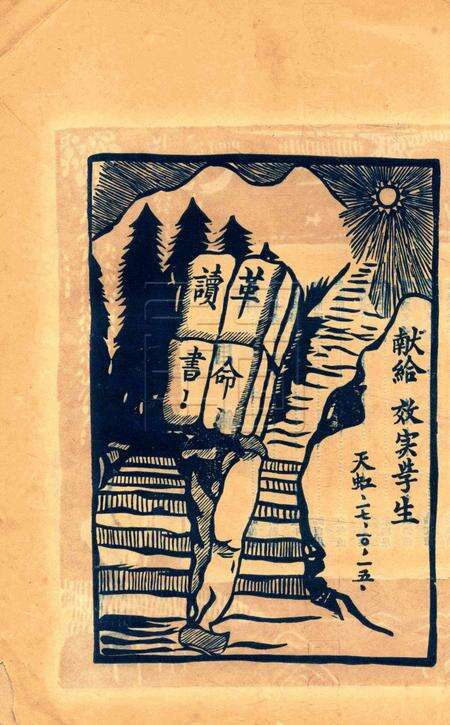 献給 效实学生
天虹、一七、一〇、一五、
革命
讀書！